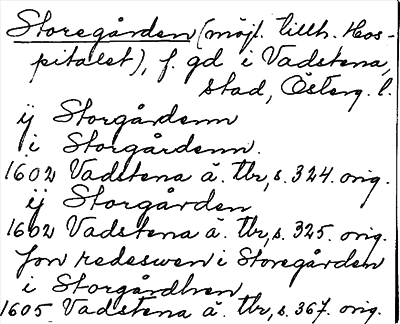 Storegården (möjl. tillh. Hos-
pitalet), f. gd i Vadstena,
stad, Österg. l.
ij Storgårdenn
i Storgårdenn.
1602 Vadstena ä. tbr, s. 324. orig.
ij Storgården
1602 Vadstena ä. tbr, s. 325. orig.
fon redeswen i Storegården
i Storgårdhen
1605 Vadstena ä. tbr, s. 367. orig.